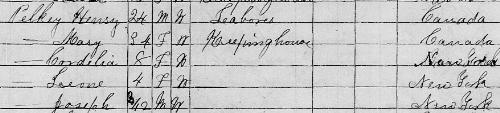 Pelkey Henry 24 M W Laborer Canada
— Mary 34 F W Keeping house Canada
— Cordelia 8 F W New York
— 4 F W New York
— Joseph 3/12 M W New York